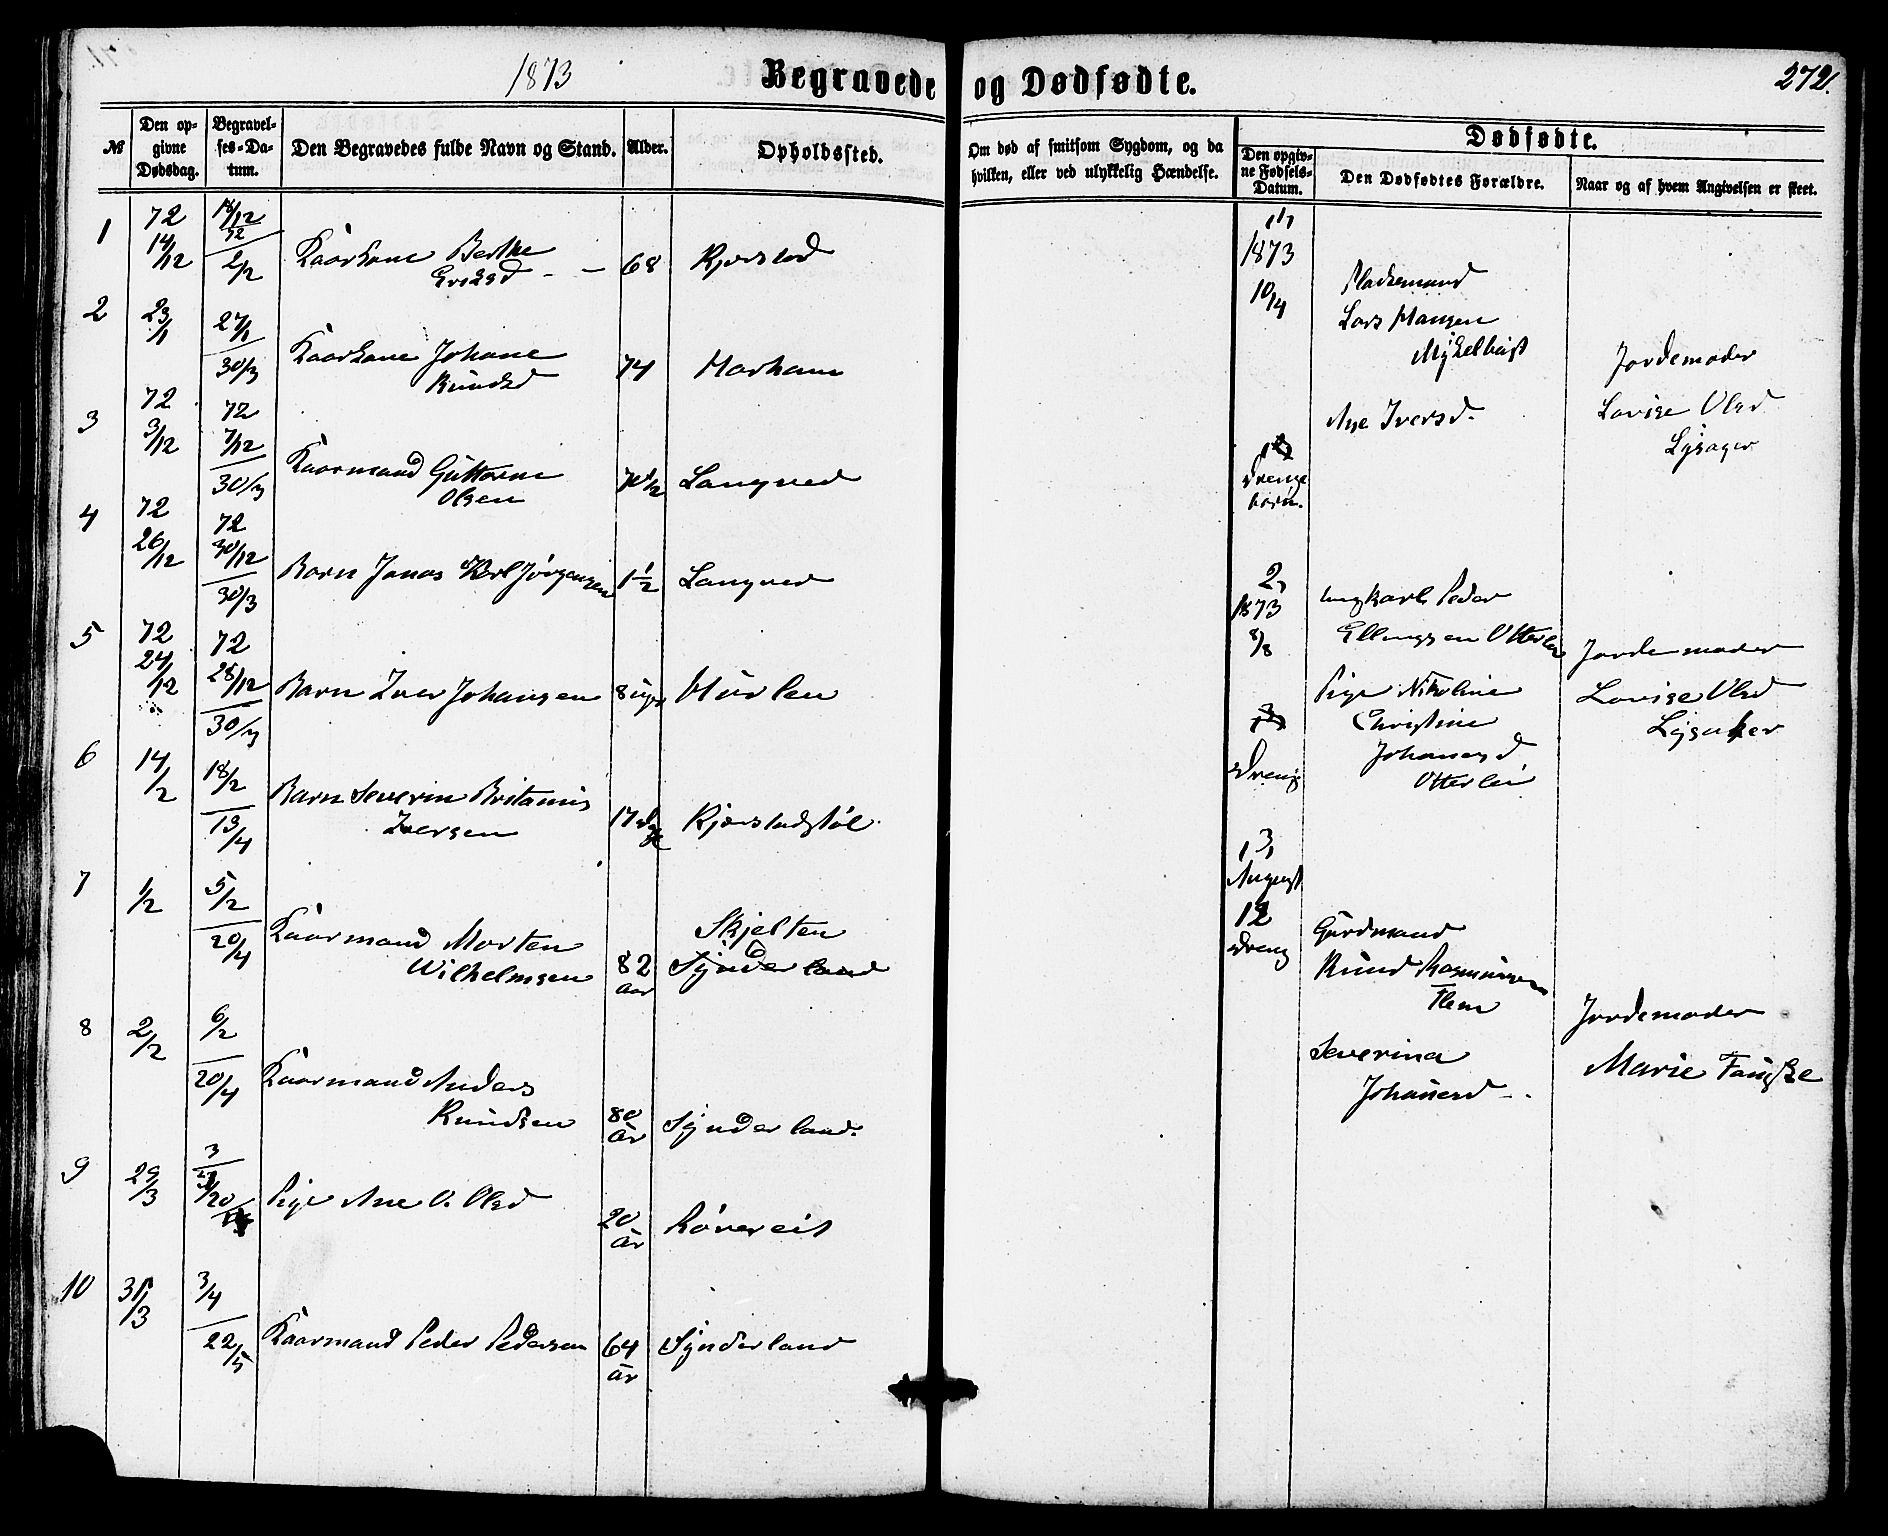 1873
Begravede og Dødfødte.
272.
№
Den opgivne Dødsdag.
Begravelses-Datum.
Den Begravedes fulde Navn og Stand.
Alder.
Opholdssted.
Om død af smitsom Sygdom, og da hvilken, eller ved ulykkelig Hændelse.
Dødfødte.
Den opgivne Fødsels-Datum.
Den Dødfødtes Forældre.
Naar og af hvem Angivelsen er skeet.
1
72
14/12
18/12
72
2/2
Kaarkone Berthe
Eriksd - -
68
Kjerstad
2
23/1
27/1
30/3
Kaarkone Johane
Knudsd
74
Harham
3
72
3/12
72
7/12
30/3
Kaarmand Guttorm
Olsen
70 1/2
Langved
4
72
26/12
72
30/12
30/3
Barn Jonas Karl Jørgensen
1 1/2
Langved
5
72
24/12
72
28/12
30/3
Barn Iver Johansen
8 ugr
Hurlen
6
14/2
18/2
13/4
Barn Severin Britanus
Iversen
17 dge
Kjerstadstøl
7
1/2
5/2
20/4
Kaarmand Morten
Wilhelmsen
82
aar
Skjelten
Synderland
8
2/2
6/2
20/4
Kaarmand Anders
Knudsen
80
år
Synderland.
9
29/3
3
Pige Ane O. Olsd
20
år
Røvereit
10
31/3
3/4
22/5
Kaarmand Peder Pedersen
64
år
Synderland
1,
1873
10/4
Pladsemand
Lars Hansen
Mykelbust
Ane Iversd.
Drenge
barn.
Jordemoder
Lovise Olsd
Lysager
2,
1873
8/8
Dreng
ungkarl Peder
Ellingsen Otterlei
Pige Nikoline
Christine
Johanesd
Otterlei
Jordemoder
Lovise Olsd
Lysaker
3,
August
12
dreng
Gårdmand
Knud Rasmussen
Flem
Severina
Johanesd -.
Jordemoder
Marie Fauske